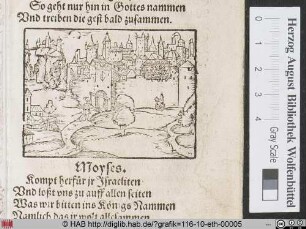 So geht nur hin in Gottes nammen
Vnd treiben die gest bald zusammen.
Moyses.
Kompt herfür jr Israeliten
Vnd loßt vns zu auff allen seiten
Was wir bitten ins Königs Nammen
Namlich das jr wolt allsammen
Herzog August Bibliothek Wolfenbüttel
Gray Scale
1
2
3
4
© HAB http://diglib.hab.de/?grafik=116-10-eth-00005